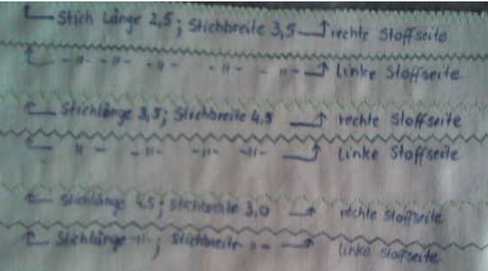 Stich Länge 2,5; Stichbreite 3,5 rechte Stoffseite
-"- -"- -"- -"- -"- linke Stoffseite
Stichlänge 3,5; Stichbreite 4,5 rechte Stoffseite
-"- -"- -"- -"- linke Stoffseite
Stichlänge 4,5; Stichbreite 3,0 rechte Stoffseite
Stichlänge -"-; Stichbreite -"- linke Stoffseite